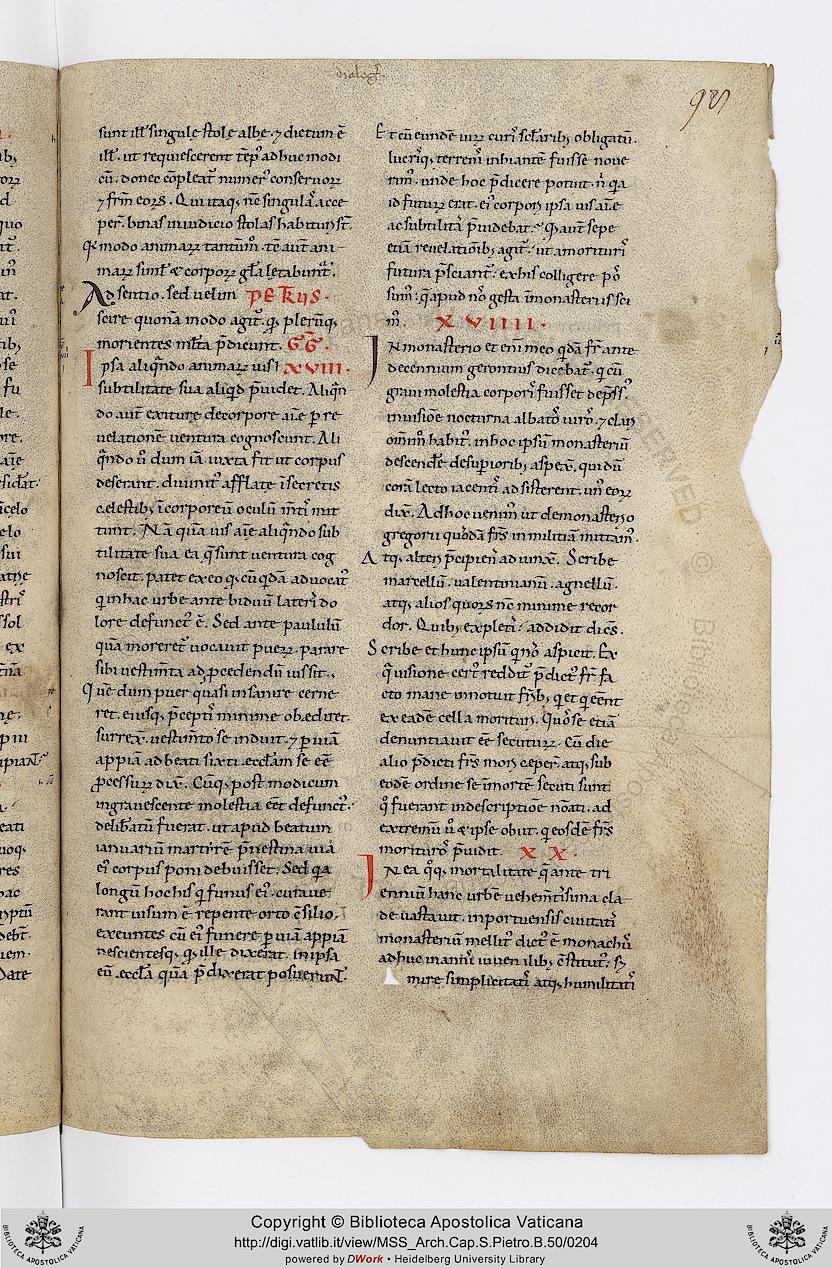 dialog̃
98
sunt ill' singulę stole albę. ⁊ dictum ē
ill'. ut requiescerent tēp' adhuc modi
cū. donec cōpleat' numer' conservoꝝ
⁊ frm̄ eoꝝ. Qui itaq; nc̄ singulas acce
per̄. binas in iudicio stolas habituri st̄.
Q̄ modo animaꝝ tantum̄. tc̄ aut̄ ani
maꝝ simł & corpoꝝ gła letabunt̄.
Ad sentio. sed velim PETRUS.
scire quonā modo agit̄. q; pleruq;
morientes mlta p̄dicunt. GG̅.
Ipsa aliqn̄do animaꝝ uis XVIII.
subtilitate sua aliqd p̄uidet. Aliqn̄
do aut̄ exiturę de corpore aīe per re
uelationē ventura cognoscunt. Ali
qn̄do ū dum iā iuxta fit ut corpus
deserant. diuinit' afflatę ī secretis
cęlestib; īcorporeū oculū mtī mit
tunt. Nā qua uis aīe aliqn̄do sub
tilitate sua ea q̄ sunt ventura cog
noscit. patet ex eo q; cū qdā advocat'
q in hac urbe ante biduū lateris do
lore defunct' ē. Sed ante paululū
quā moreret' vocauit pueꝝ. parare
sibi vestimta ad p̄cedendū iussit.
Quē dum puer quasi insanire cerne
ret. eiusq; p̄ceptis minime obędiret.
surrex. vestimto se induit. ⁊ p̄ uiā
appiā ad beati sixti ęccłam se eē
p̄cessuꝝ dix̄. Cūq; post modicum
ingravescente molestia eēt defunct'.
delib̄atū fuerat. ut apud beatum
ianuariū martirē p̄nestina via
ei' corpus poni debuisset. Sed q̄a
longū hoc his q̄ funus ei' curave
rant visum ē. repente orto c̄silio.
exeuntes cū ei' funere p̄ uiā appiā
nescientesq; q; ille dixerat. in ipsa
eū ęccła quā p̄dixerat posuerunt̄.
Et cū eundē uiꝝ curis scłarib; obligatū.
lucrisq; terrenis inhiantē fuisse nove
rim'. unde hoc p̄dicere potuit. ñ q̄a
id futuꝝ erat. ei' corporis ipsa uis aīe
ac subtilitas p̄uidebat. Q; aut̄ sepe
etiā revelationib; agit̄. ut a morituris
futura p̄sciant̄. ex his colligere pos
sum'. q̄ apud nos gesta ī monasteriis sci
m'. XVIIII.
IN monasterio et enī meo qdā fr̄ ante
decennium gerontius dicebat̄. q cū
gravi molestia corporis fuisset dep̄ss'.
in uisione nocturna albatos viros ⁊ clari
om̄is habitus. in hoc ipsū monasteriū
descendere desup̄iorib; aspex̄. qui dū
corā lecto iacentis adsisterent. un' eoꝝ
dix̄. Ad hoc venim' ut de monasterio
gregorii quosdā frs̄ in militiā mittam'.
Atq; alteri p̄cipiens adiunx̄. Scribe
marcellū. valentinianū. agnellū.
atq; alios quoꝝ nc̄ minime recor
dor. Quib; expletis. addidit dicēs.
Scribe et hunc ipsū q nos aspicit. Ex
q̄ visione cert' reddit' p̄dict' fr̄ fa
cto mane innotuit frīb; q et q eēnt
ex eadē cella morituri. Quos se etiā
denuntiavit eē secutuꝝ. Cū die
alio p̄dicti frs̄ mori ceper̄. atq; sub
eodē ordine se ī morte secuti sunt
q̄ fuerant in descriptioē nōati. ad
extremū ū & ipse obiit. q eosdē frs̄
morituros p̄uidit. XX.
IN ea q'q; mortalitate q̄ ante tri
enniū hanc urbē vehemtissima cla
de vastavit. in portuensis civitatis
monasteriū mellit' dict' ē monach'
adhuc in annis iuvenilib; c̄stitut'. s;
mirę simplicitatis atq; humilitatis
Copyright © Biblioteca Apostolica Vaticana
http://digi.vatlib.it/view/MSS_Arch.Cap.S.Pietro.B.50/0204
powered by DWork • Heidelberg University Library